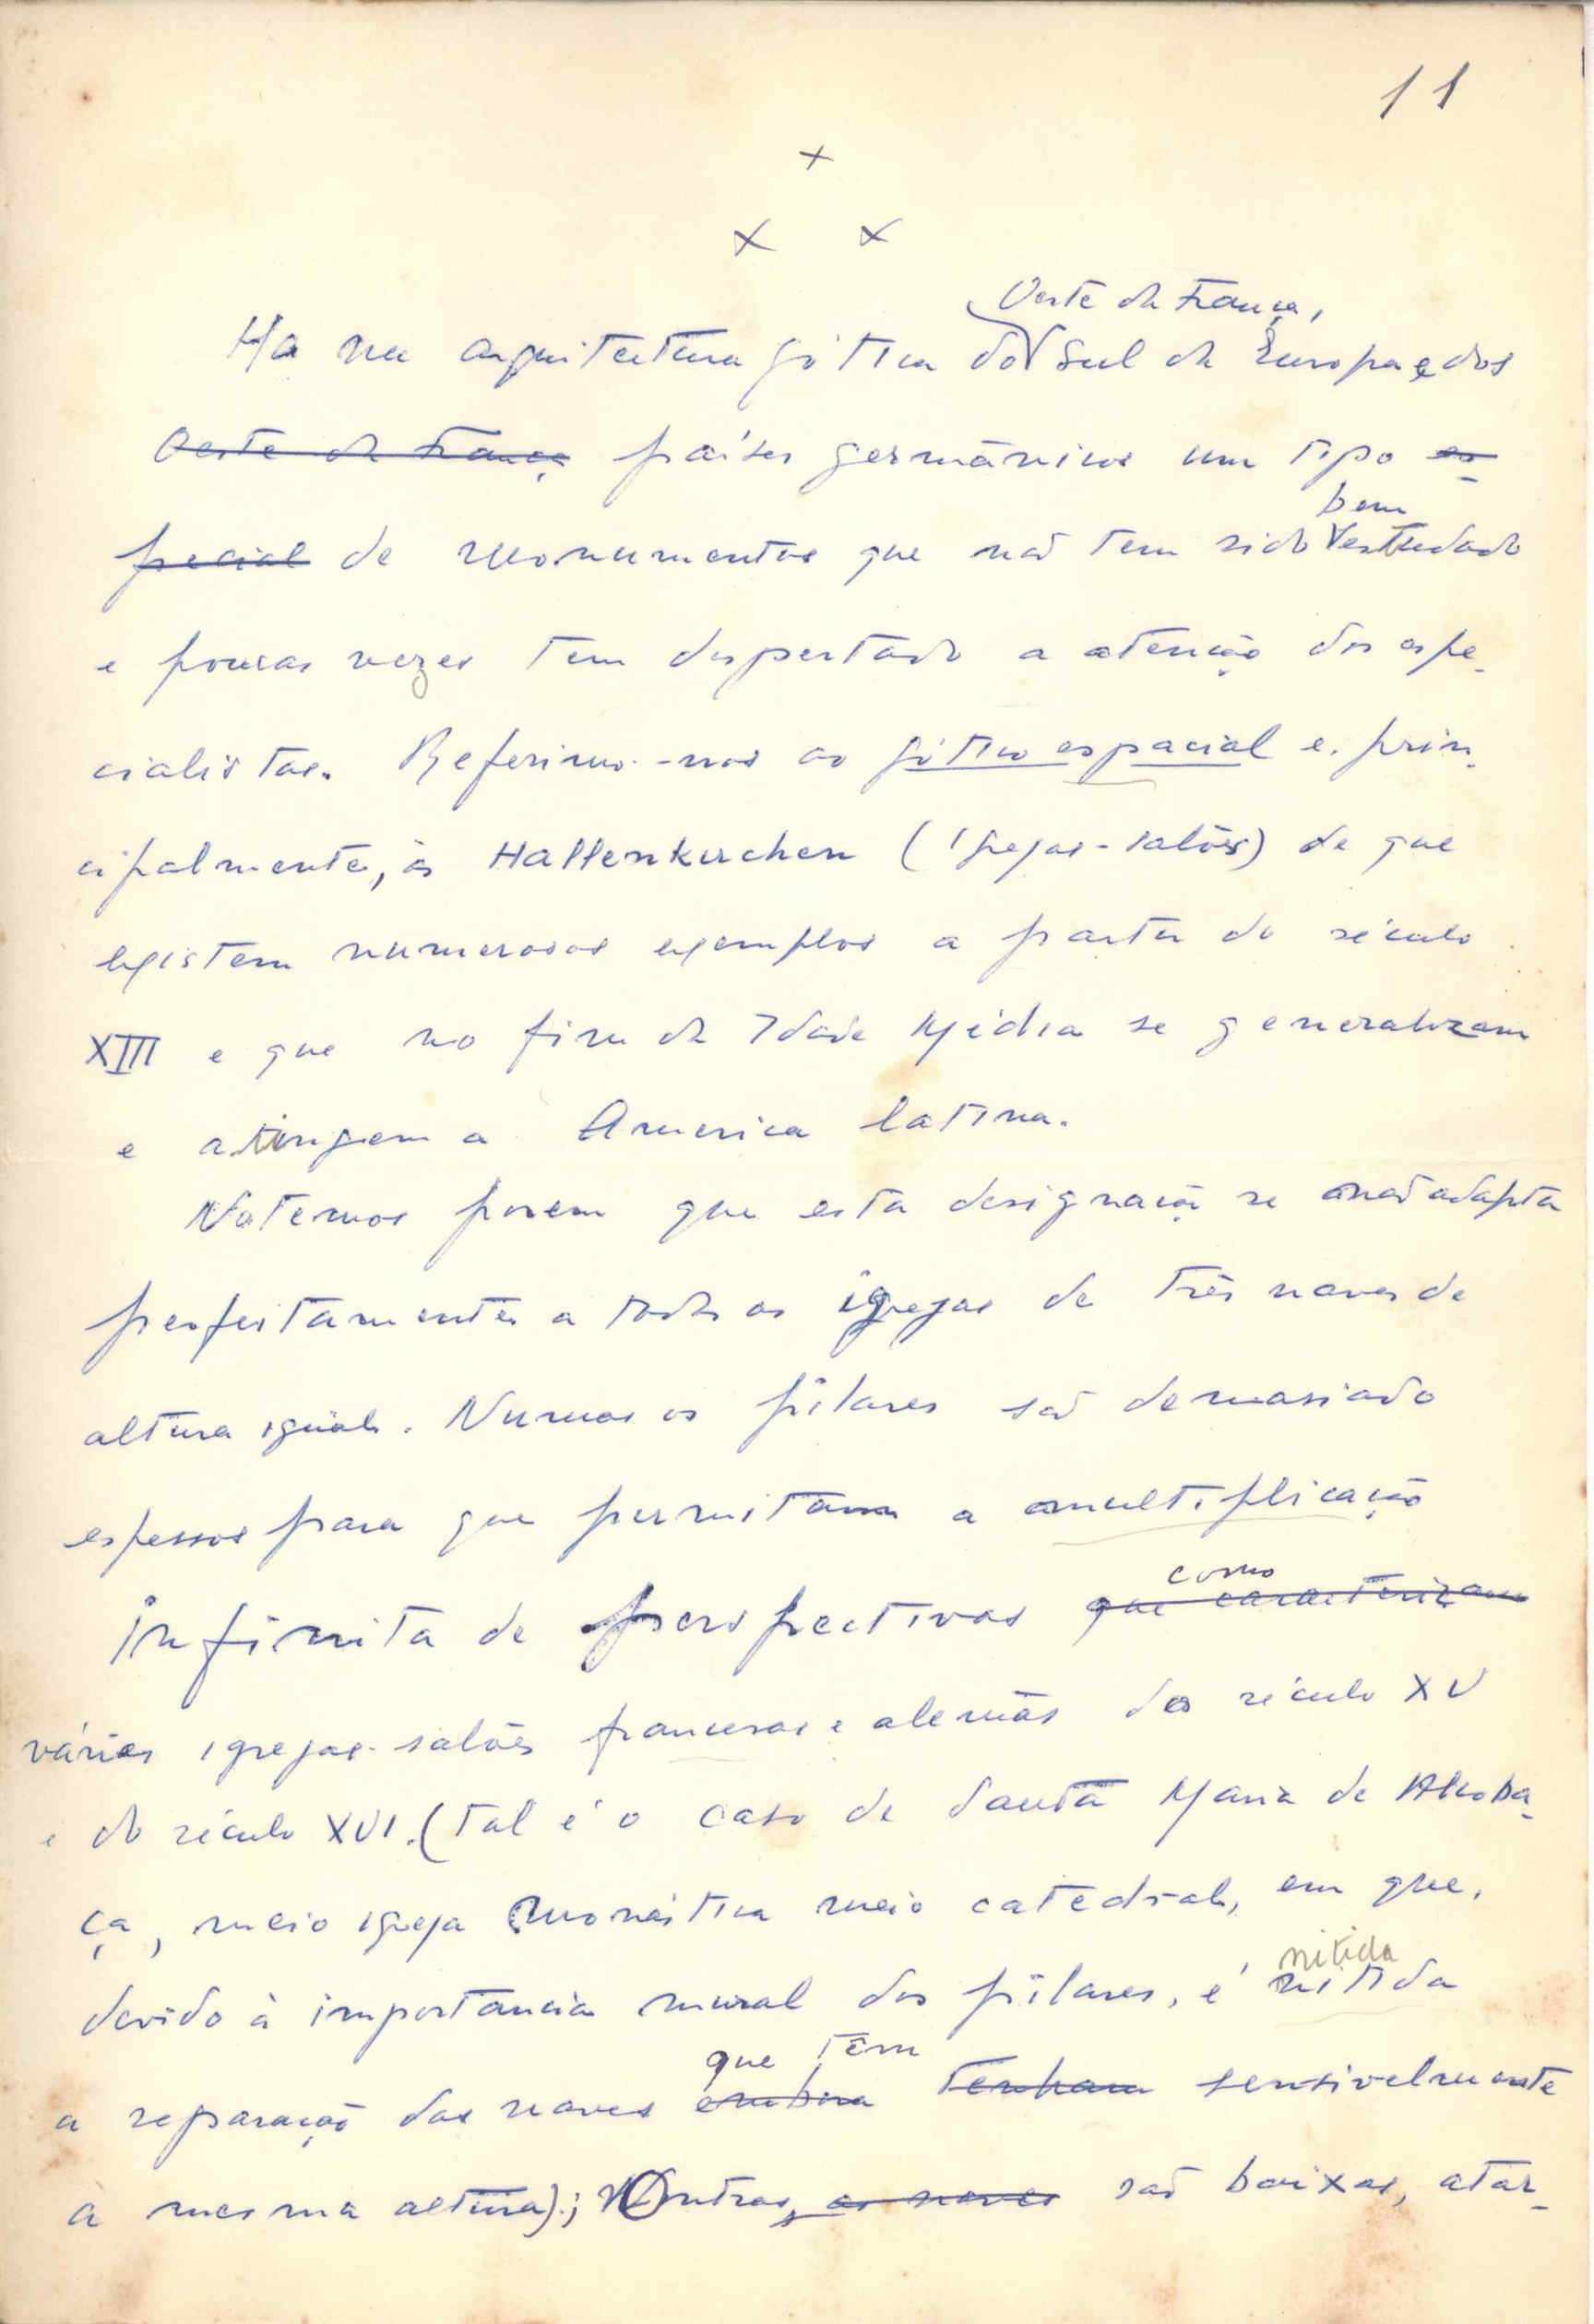 11
+
x x
Oeste da França,
Ha na arquitectura gótica do Sul da Europa e dos
Oeste da França países germânicos um tipo es-
pecial de monumentos que não tem sido bem estudado
e poucas vezes tem despertado a atenção dos espe-
cialistas. Referimo-nos ao gótico espacial e, prin-
cipalmente, às Hallenkirchen (Igrejas-salões) de que
existem numerosos exemplos a partir do século
XIII e que no fim da Idade Média se generalizam
e atingem a America latina.
Notemos porem que esta designação se não adapta
perfeitamente a todas as igrejas de três naves de
altura igual. Numas os pilares são demasiado
espessos para que permitam a multiplicação
infinita de perspectivas que caracterizam
como
várias igrejas-salões francesas e alemãs do século XV
e do século XVI. (Tal é o caso de Santa Maria de Alcoba-
ça, meio igreja monástica meio catedral, em que,
devido à importancia mural dos pilares, é nitida
nitida
a separação das naves embora tenham sensivelmente
que têm
a mesma altura).; Outras, as naves são baixas, atar-